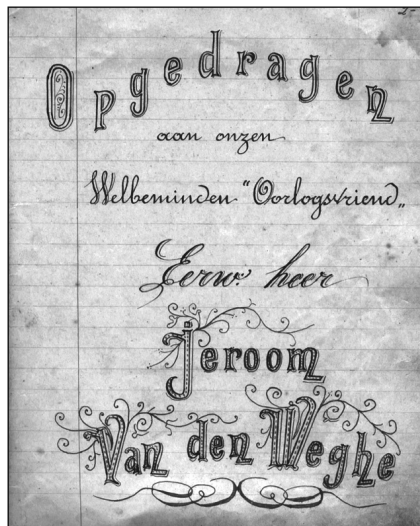 Opgedragen
aan onzen
Welbeminden "Oorlogsvriend„
Eerw: heer
Jeroom
Van den Weghe